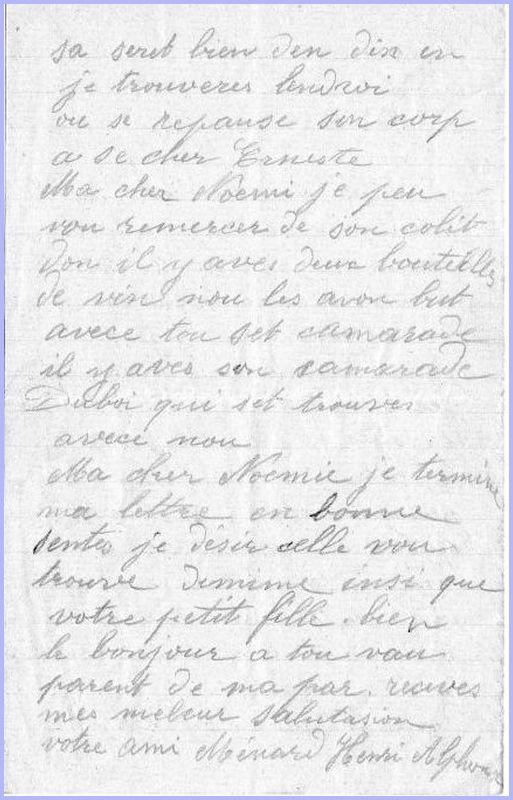 sa seret bien den dix en
je trouveres lendroi
ou se repause son corp
a se cher Erneste
Ma cher Noemi je peu
vou remercer de son colit
don il y aves deux bouteilles
de vin nou les avon but
avece tou set camarade
il y aves son camarade
Duboi qui set trouves
avece nou
Ma cher Noemie je termine
ma lettre en bonne
sentes je désir celle vou
trouve demime insi que
votre petit fille. bien
le bonjour a tou vau
parent de ma par. recives
mes meleur salutasion
votre ami Ménard Henri Alphonse